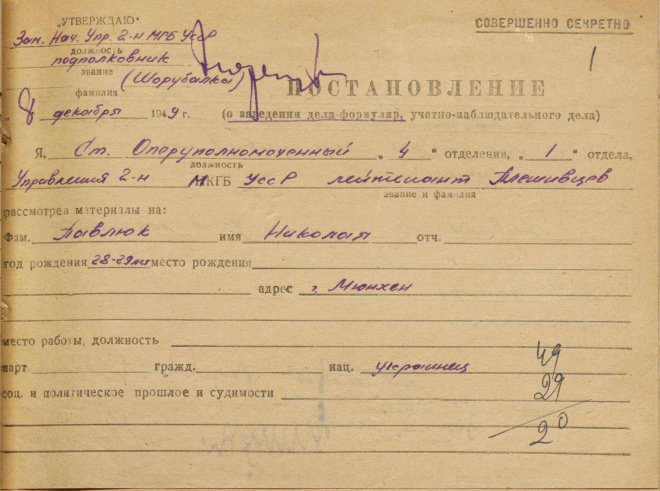 „УТВЕРЖДАЮ"
СОВЕРШЕННО СЕКРЕТНО
Зам. Нач. Упр. 2-Н МГБ УССР
должность
1
подполковник
звание
(Шорубалка)
фамилия
ПОСТАНОВЛЕНИЕ
8 декабря 1949 г.
(о заведении дела-формуляр, учетно-наблюдательного дела)
Я, Ст. Оперуполномоченный „4" отделения, „1" отдела,
должность
Управления 2-Н МГБ УССР лейтенант
звание и фамилия
рассмотрев материалы на:
Фам. Павлюк имя Николая отч.
год рождения 28-29 лет место рождения
адрес г. Мюнхен
место работы, должность
парт гражд. нац. украинец
соц. и политическое прошлое и судимости
49
29
20